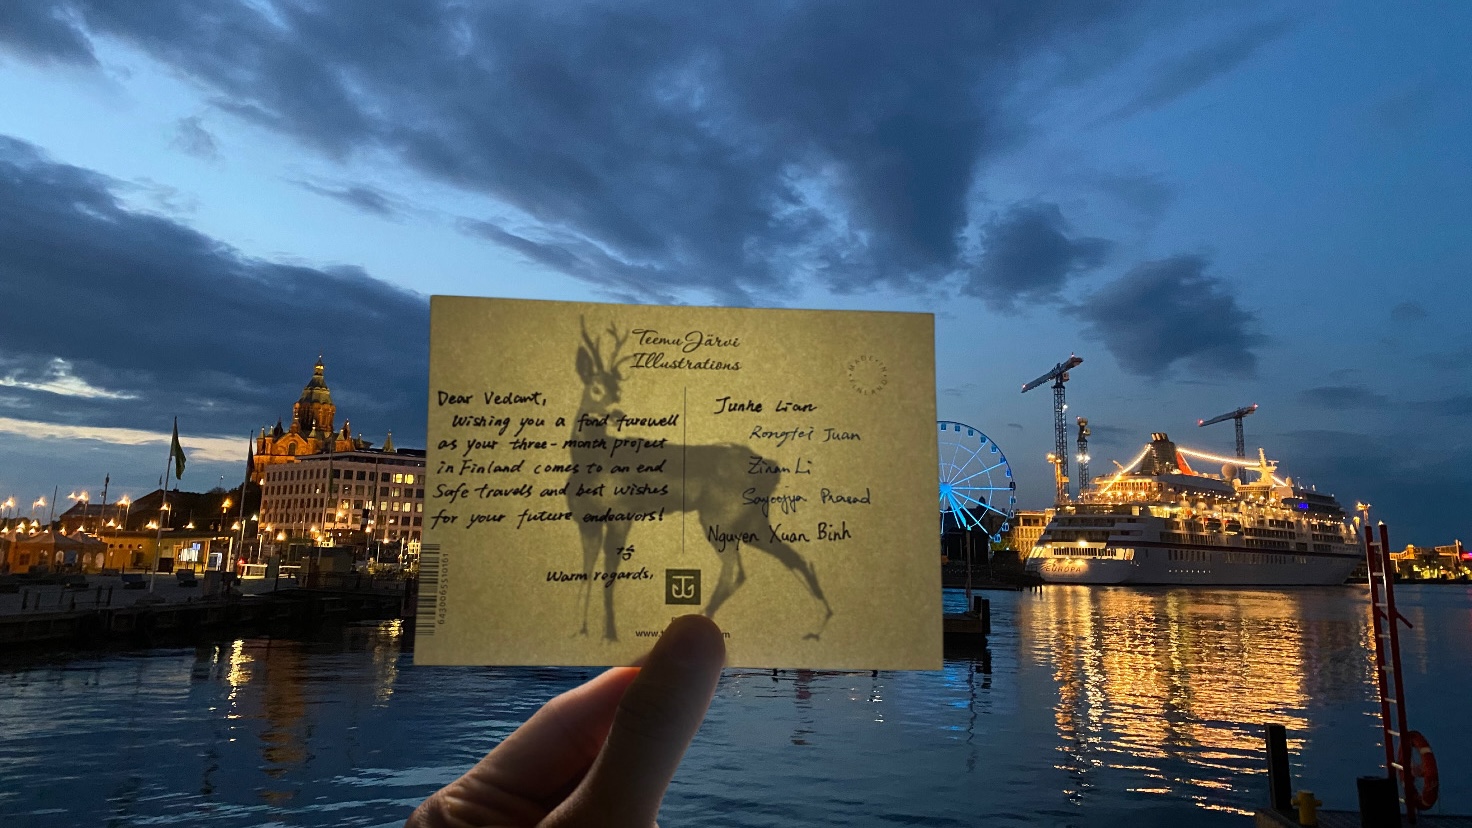 Teemu Järvi
Illustrations
MADE IN FINLAND
Dear Vedant,
Wishing you a fond farewell
as your three-month project
in Finland comes to an end
Safe travels and best wishes
for your future endeavors!
Warm regards,
Junhe Lian
Rongfei Juan
Zinan Li
Sayoojya Prasad
Nguyen Xuan Binh
6430065510161
www.
m
EUROPA